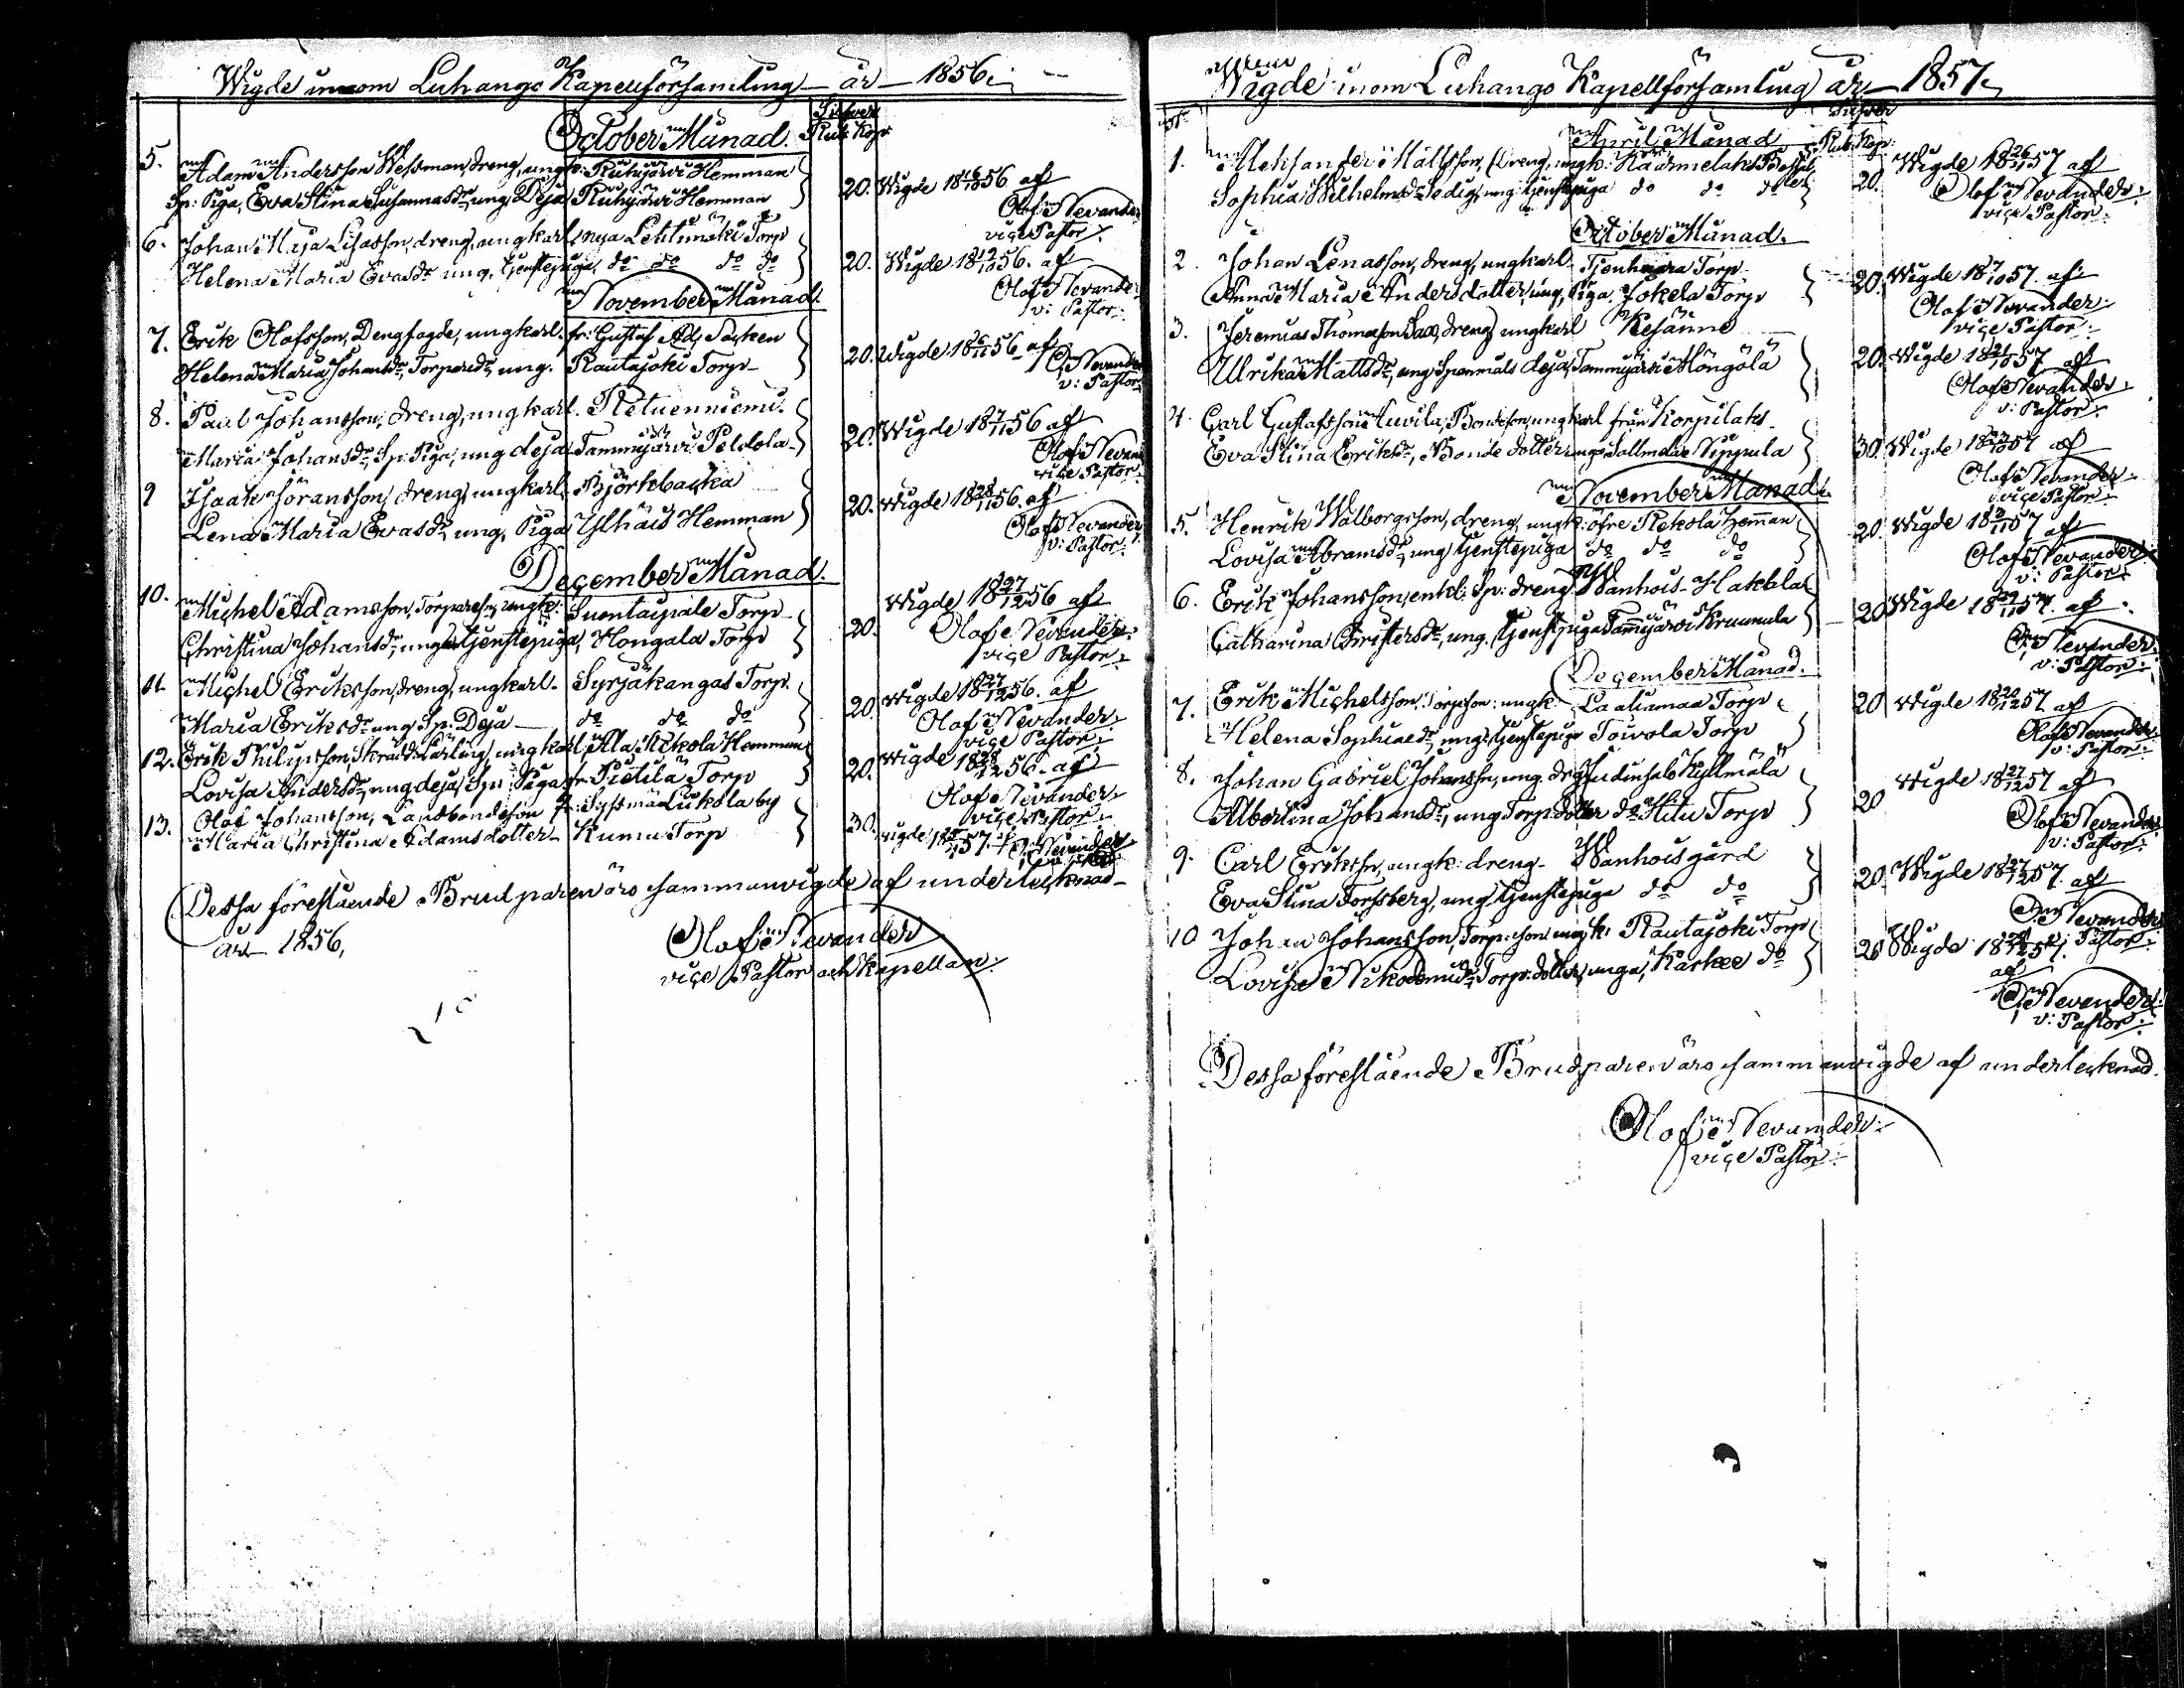 Wigde inom Luhango Kapellförsamling år 1856.
Silfver
Rub. Kop.
October Månad.
5. Adam Andersson Wessman, dreng, ungk: Ruhijärvi Hemman
Sp: Piga, Eva Stina Susannasdr, ung Deja Ruhijärvi Hemman
20. Wigde 18 /10 56 af
Olof Nevander
vice Pastor.
6. Johan Maja Lisasson, dreng, ungkarl, nya Lehtimäki Torp
Helena Maria Evasdr ung, tjenstepiga do do do do
20. Wigde 18 /10 56. af
Olof Nevander
v: Pastor.
November Månad.
7. Erik Olofsson, Dengfogde, ungkarl. fr: Gustaf Ad:
Helena Maria Johansdr, Torparedr, ung. Rautajoki Torp
20. Wigde 18 /11 56 af
O. Nevander
v: Pastor.
8. Paul Johansson, dreng, ungkarl. Retuenniemi.
Maria Johansdr, Sp: Piga, ung deja Tammijärvi Peldola
20. Wigde 18 /11 56 af
Olof Nevander
vice Pastor.
9 Isaak Jöransson, dreng, ungkarl. Björkbacka
Lena Maria Evasdr, ung, Piga Ylhäis Hemman
20. Wigde 18 /11 56. af
Olof Nevander
v: Pastor.
December Månad.
10. Michel Adamsson, Torparesn, ungk: Suentaipale Torp
Christina Johansdr, ung tjenstepiga, Hongala Torp
20. Wigde 18 27/12 56 af
Olof Nevander.
vice Pastor.
11. Michel Eriksson, dreng, ungkarl. Syrjäkangas Torp.
Maria Eriksdr ung Sp. Deja do do do
20. Wigde 18 27/12 56. af
Olof Nevander.
vice Pastor.
12. Erik Philipsson, Skräd. Lärling, ungkarl, Alla Rekola Hemman
Lovisa Andersdr, ung deja, Sp: Piga fr. Pietilä Torp
20. Wigde 18 /12 56. af
Olof Nevander
vice Pastor.
13. Olof Johansson, Landbondeson fr: Sysmä Liikola by
Maria Christina Adamsdotter Kumu Torp
30. Wigde 18 57. af O. Nevander
Dessa föreslående Brudparen äro sammanvigde af undertecknad
år 1856,
Olof Nevander
vice Pastor och Kapellan.
Wigde inom Luhango Kapellförsamling år 1857.
Silfver
Rub. Kop.
April Månad
1. Alexander Mattsson, dreng, ungk:
Sophia Wilhelmsdr Ledig, ung tjenstepiga do do do
20. Wigde 18 26/ 57 af
Olof Nevander.
vice Pastor.
October Månad.
2. Johan Lenasson, dreng, ungkarl. Torp
Anna Maria Andersdotter, ung, Piga. Jokela Torp
20. Wigde 18 /10 57. af
Olof Nevander.
vice Pastor.
3. Jeremias Thomasson Sax, dreng ungkarl Kesänne
Ulrika Mattsdr, ung Spanmåls deja, Tammijärvi Möngölä
20. Wigde 18 /10 57 af
Olof Nevander.
v: Pastor.
4. Carl Gustafsson Bondeson, ungkarl från Korpilaks
Eva Stina Eriksdr, Bonde dotter, ung Sippula
30. Wigde 18 /10 57 af
Olof Nevander
vice Pastor.
November Månad.
5. Henrik Walborgsson, dreng, ungk: öfre Rekola Hemman
Lovisa Abramsdr, ung tjenstepiga do do do
20. Wigde 18 /11 57 af
Olof Nevander
v: Pastor.
6. Erik Johansson, enkl: Sp: dreng Wanhois-Hakkla
Catharina Christersdr, ung. tjenstpiga Tammijärvi Kruunula
20 Wigde 18 /11 57. af
O. Nevander.
v: Pastor.
December Månad.
7. Erik Michelsson, Torpson: ungk: Laaliamaa Torp
Helena Sophiaedr, ung tjenstepiga Toivola Torp
20 Wigde 18 /12 57 af
Olof Nevander
v: Pastor.
8. Johan Gabriel Johanssn, ung. dreng Kyllmälä
Albertina Johansdr, ung Torp: dotter do Torp
20 Wigde 18 27/12 57 af
Olof Nevander
v: Pastor.
9. Carl Erikssn, ungk: dreng Wanhois gård
Eva Stina Forssberg, ung tjenstepiga do do
20. Wigde 18 27/12 57. af
O. Nevander
v: Pastor.
10 Johan Johansson, Torp: son ungk: Rautajoki Torp
Lovisa Nikodemidr, Torp: dotter, unga, Karkee do
20 Wigde 18 /12 57.
af
O. Nevander.
v: Pastor.
Dessa föreslående Brudparen äro sammanvigde af undertecknad.
Olof Nevander.
vice Pastor.